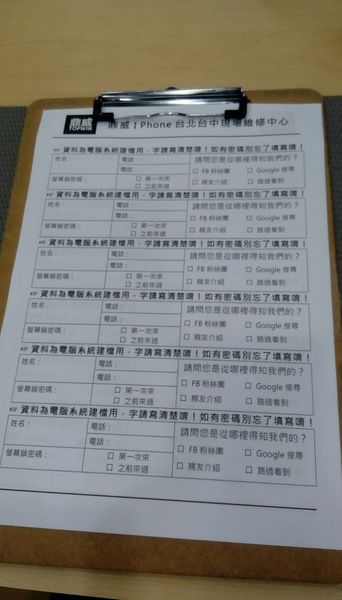 鼎威
TOPWIN
鼎威 I Phone 台北台中現場維修中心
☞ 資料為電腦系統建檔用，字請寫清楚唷！如有密碼別忘了填寫唷！
姓名： 電話： 請問您是從哪裡得知我們的？
電話： □ FB 粉絲團 □ Google 搜尋
螢幕鎖密碼： □ 第一次來 □ 親友介紹 □ 路過看到
□ 之前來過
☞ 資料為電腦系統建檔用，字請寫清楚唷！如有密碼別忘了填寫唷！
姓名： 電話： 請問您是從哪裡得知我們的？
電話： □ FB 粉絲團 □ Google 搜尋
螢幕鎖密碼： □ 第一次來 □ 親友介紹 □ 路過看到
□ 之前來過
☞ 資料為電腦系統建檔用，字請寫清楚唷！如有密碼別忘了填寫唷！
姓名： 電話： 請問您是從哪裡得知我們的？
電話： □ FB 粉絲團 □ Google 搜尋
螢幕鎖密碼： □ 第一次來 □ 親友介紹 □ 路過看到
□ 之前來過
☞ 資料為電腦系統建檔用，字請寫清楚唷！如有密碼別忘了填寫唷！
姓名： 電話： 請問您是從哪裡得知我們的？
電話： □ FB 粉絲團 □ Google 搜尋
螢幕鎖密碼： □ 第一次來 □ 親友介紹 □ 路過看到
□ 之前來過
☞ 資料為電腦系統建檔用，字請寫清楚唷！如有密碼別忘了填寫唷！
姓名： 電話： 請問您是從哪裡得知我們的？
電話： □ FB 粉絲團 □ Google 搜尋
螢幕鎖密碼： □ 第一次來 □ 親友介紹 □ 路過看到
□ 之前來過
☞ 資料為電腦系統建檔用，字請寫清楚唷！如有密碼別忘了填寫唷！
姓名： 電話： 請問您是從哪裡得知我們的？
電話： □ FB 粉絲團 □ Google 搜尋
螢幕鎖密碼： □ 第一次來 □ 親友介紹 □ 路過看到
□ 之前來過